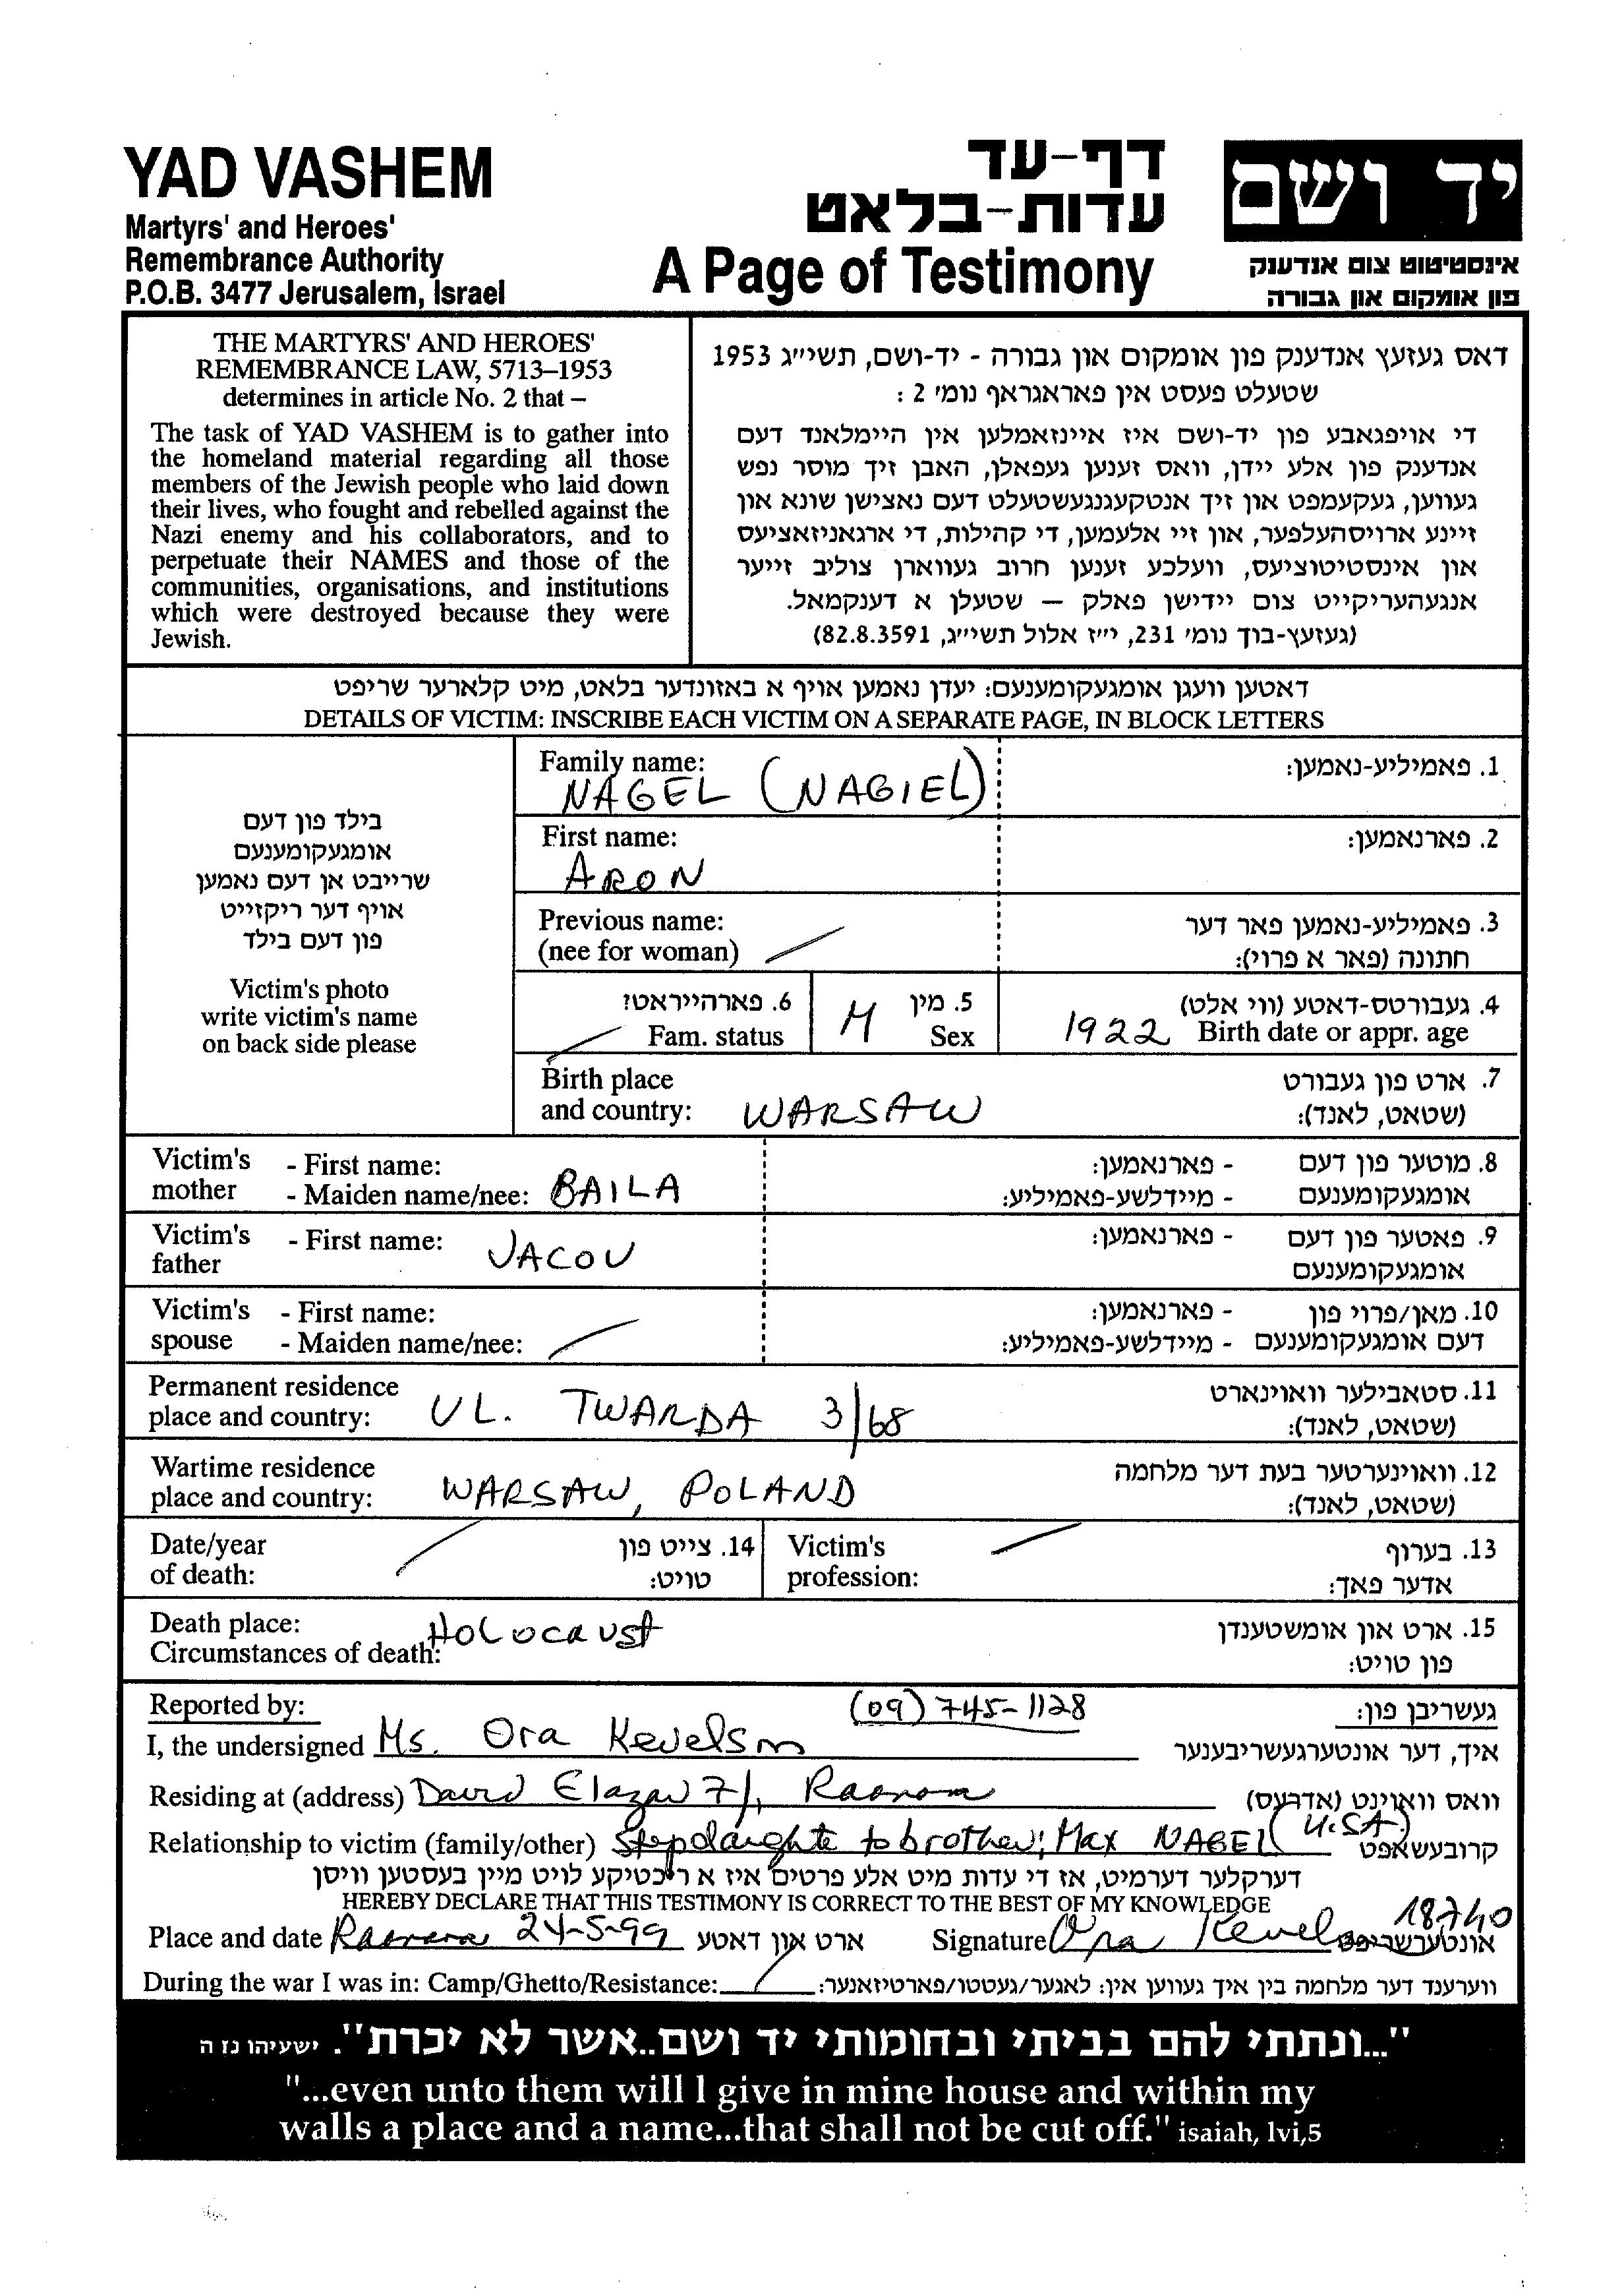 YAD VASHEM
Martyrs' and Heroes'
Remembrance Authority
P.O.B. 3477 Jerusalem, Israel
דף-עד
עדות-בלאט
A Page of Testimony
יד ושם
אינסטיטוט צום אנדענק
פון אומקום און גבורה
THE MARTYRS' AND HEROES'
REMEMBRANCE LAW, 5713–1953
determines in article No. 2 that –
The task of YAD VASHEM is to gather into
the homeland material regarding all those
members of the Jewish people who laid down
their lives, who fought and rebelled against the
Nazi enemy and his collaborators, and to
perpetuate their NAMES and those of the
communities, organisations, and institutions
which were destroyed because they were
Jewish.
דאס געזעץ אנדענק פון אומקום און גבורה - יד-ושם, תשי״ג 1953
שטעלט פעסט אין פאראגראף נומ׳ 2 :
די אויפגאבע פון יד-ושם איז איינזאמלען אין היימלאנד דעם
אנדענק פון אלע יידן, וואס זענען געפאלן, האבן זיך מוסר נפש
געווען, געקעמפט און זיך אנטקעגנגעשטעלט דעם נאצישן שונא און
זיינע ארויסהעלפער, און זיי אלעמען, די קהילות, די ארגאניזאציעס
און אינסטיטוציעס, וועלכע זענען חרוב געווארן צוליב זייער
אנגעהעריקייט צום יידישן פאלק — שטעלן א דענקמאל.
(געזעץ-בוך נומ׳ 231, י״ז אלול תשי״ג, 82.8.3591)
דאטען וועגן אומגעקומענעם: יעדן נאמען אויף א באזונדער בלאט, מיט קלארער שריפט
DETAILS OF VICTIM: INSCRIBE EACH VICTIM ON A SEPARATE PAGE, IN BLOCK LETTERS
בילד פון דעם
אומגעקומענעם
שרייבט אן דעם נאמען
אויף דער ריקזייט
פון דעם בילד
Victim's photo
write victim's name
on back side please
Family name: 1. פאמיליע-נאמען:
NAGEL (NAGIEL)
First name: 2. פארנאמען:
ARON
Previous name: 3. פאמיליע-נאמען פאר דער
(nee for woman) חתונה (פאר א פרוי):
6. פארהייראט? 5. מין 4. געבורטס-דאטע (ווי אלט)
Fam. status M Sex 1922 Birth date or appr. age
Birth place 7. ארט פון געבורט
and country: WARSAW (שטאט, לאנד):
Victim's - First name: - פארנאמען: 8. מוטער פון דעם
mother - Maiden name/nee: BAILA - מיידלשע-פאמיליע: אומגעקומענעם
Victim's - First name: JACOV - פארנאמען: 9. פאטער פון דעם
father אומגעקומענעם
Victim's - First name: - פארנאמען: 10. מאן/פרוי פון
spouse - Maiden name/nee: - מיידלשע-פאמיליע: דעם אומגעקומענעם
Permanent residence 11. סטאבילער וואוינארט
place and country: UL. TWARDA 3/68 (שטאט, לאנד):
Wartime residence 12. וואוינערטער בעת דער מלחמה
place and country: WARSAW, POLAND (שטאט, לאנד):
Date/year 14. צייט פון Victim's 13. בערוף
of death: טויט: profession: אדער פאך:
Death place: HOLOCAUST 15. ארט און אומשטענדן
Circumstances of death: פון טויט:
Reported by: (09) 745-1128 געשריבן פון:
I, the undersigned Ms. Ora Kevelson איך, דער אונטערגעשריבענער
Residing at (address) David Elazar 7/, Raanana וואס וואוינט (אדרעס)
Relationship to victim (family/other) Stepdaughte to brother; Max NAGEL (U.SA) קרובעשאפט
דערקלער דערמיט, אז די עדות מיט אלע פרטים איז א ריכטיקע לויט מיין בעסטען וויסן
HEREBY DECLARE THAT THIS TESTIMONY IS CORRECT TO THE BEST OF MY KNOWLEDGE
18740
Place and date Raanana 24-5-99 ארט און דאטע Signature Ora Kevelson אונטערשריפט
During the war I was in: Camp/Ghetto/Resistance: ווערענד דער מלחמה בין איך געווען אין: לאגער/געטטו/פארטיזאנער:
"...ונתתי להם בביתי ובחומותי יד ושם..אשר לא יכרת". ישעיהו נז ה
"...even unto them will I give in mine house and within my
walls a place and a name...that shall not be cut off." isaiah, lvi,5